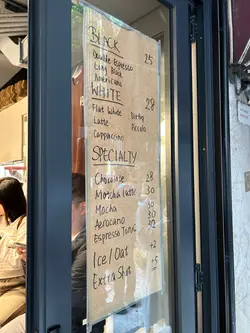 BLACK
Double Espresso 25
Long Black
Americano
WHITE 28
Flat White Dirty
Latte Piccolo
Cappuccino
SPECIALTY
Chocolate 28
Matcha Latte 30
Mocha 30
Aerocano 30
Espresso Tonic 32
Ice / Oat +2
Extra Shot +5